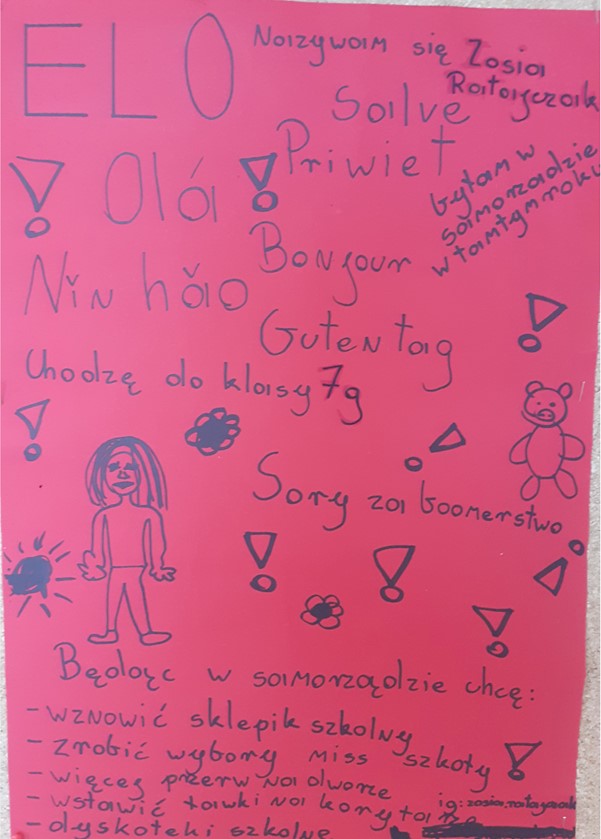 ELO
Nazywam się Zosia
Ratajczak
Salve
Olá!
Priwiet
byłam w
samorządzie
w tamtym roku
Bonjour
Nín hǎo
Guten tag
Chodzę do klasy 7g
Sory za boomerstwo
Będąc w samorządzie chcę:
- wznowić sklepik szkolny
- zrobić wybory miss szkoły
- więcej przerw na dworze
- wstawić ławki na korytarze
ig: zosia.ratajczak
- dyskoteki szkolne